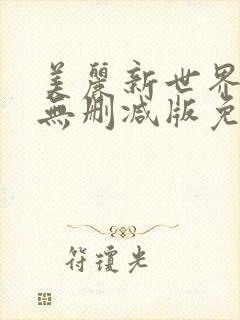 美麗新世界
無刪減版免
符瓊光